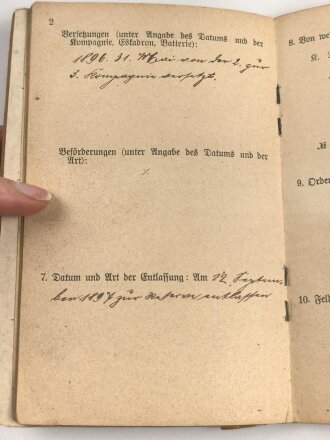 2
Versetzungen (unter Angabe des Datums und der
Kompagnie, Eskadron, Batterie):
1896. 31. Mai von der 2. zur
3. Kompagnie versetzt.
Beförderungen (unter Angabe des Datums und der
Art):
7. Datum und Art der Entlassung: Am 17. Septem-
ber 1897 zur Reserve entlassen
8. Von we
K.
№
9. Orde
10. Fel